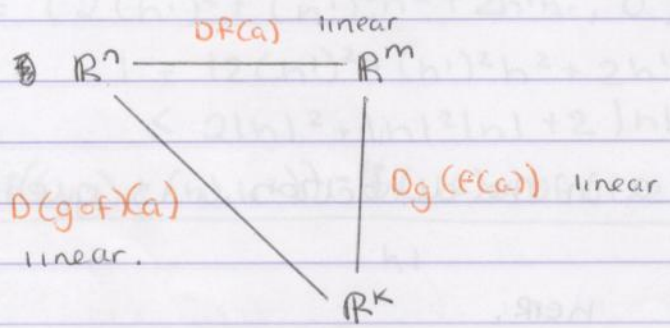 Df(a) linear
ℝⁿ ℝᵐ
Dg (f(a)) linear
D(gof)(a)
linear.
ℝᴷ